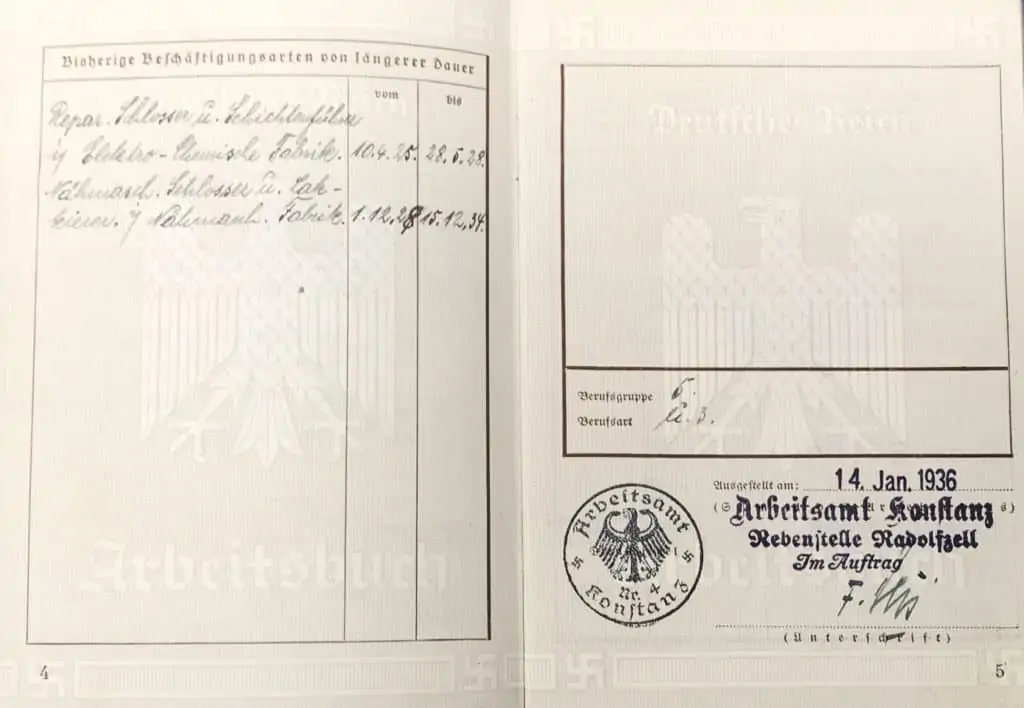 Bisherige Beschäftigungsarten von längerer Dauer
vom bis
Repar. Schlosser u. Schichtenführer
i/ Elektro-Chemische Fabrik. 10.4.25. 28.5.28.
Nähmasch. Schlosser u. Lak-
kierer. i/ Nähmasch. Fabrik. 1.12.28 15.12.34.
Arbeitsbuch
4
Deutsches Reich
Berufsgruppe 5.
Berufsart a. 3.
Ausgestellt am: 14. Jan. 1936
Arbeitsamt Konstanz
Nebenstelle Radolfzell
Im Auftrag
(Unterschrift)
Arbeitsamt
Nr. 4
Konstanz
5